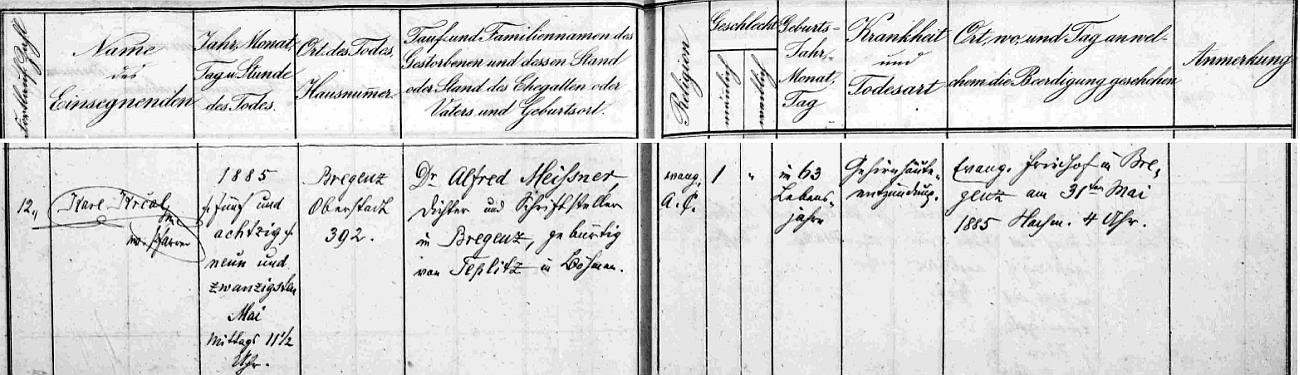 Fortlauf. Zahl
Name
des
Einsegnenden
Jahr, Monat,
Tag u. Stunde
des Todes.
Ort des Todes,
Hausnum̅er.
Tauf- und Familiennamen des
Gestorbenen und dessen Stand
oder Stand des Ehegatten oder
Vaters und Geburtsort.
Religion
Geschlecht
männlich
weiblich
Geburts-
Jahr,
Monat,
Tag
Krankheit
und
Todesart
Ort, wo, und Tag an wel-
chem die Beerdigung geschehen
Anmerkung
12.,
ev. Pfarrer
1885
fünf und
achtzig
neun und
zwanzigsten
Mai
Mittags 11½
Uhr.
Bregenz
Oberstadt
392.
Dr. Alfred Meißner,
Dichter und Schriftsteller
in Bregenz, gebürtig
von Teplitz in Böhmen.
evang.
A. C.
1
"
in 63
Lebens-
jahr
Gehirnhäute-
entzündung.
Evang. Friedhof in Bre-
genz am 31ten Mai
1885 Nachm. 4 Uhr.